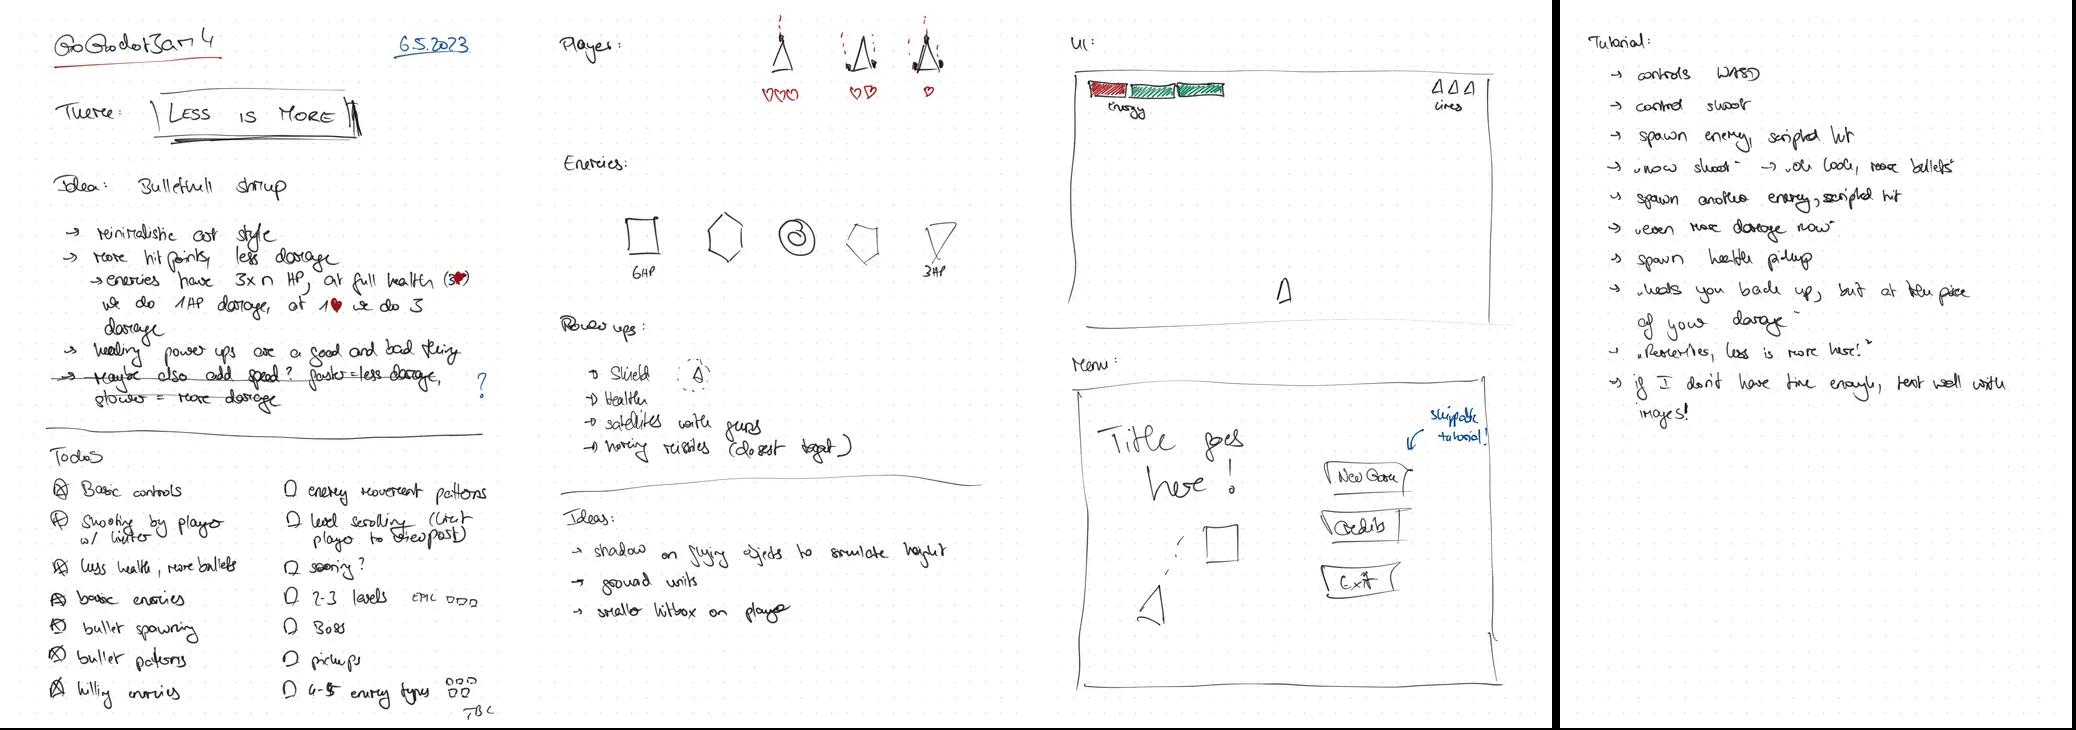 GoGodotJam 4
6.5.2023
Theme: LESS IS MORE
Idea: Bullethell shmup
→ minimalistic art style
→ more hit points, less damage
→ enemies have 3x n HP, at full health (3♥)
we do 1AP damage, at 1♥ we do 3
damage
→ healing power ups are a good and bad thing
→ maybe also add speed? faster = less damage,
slower = more damage
?
Todos
Basic controls
Shooting by player
w/ limiter
less health, more bullets
basic enemies
bullet spawning
bullet patterns
killing enemies
enemy movement patterns
level scrolling (limit
player to viewport)
scoring?
2-3 levels EPIC
Boss
pickups
4-5 enemy types
TBC
Player:
Enemies:
6HP
3HP
Power ups:
→ Shield
→ Health
→ satellites with guns
→ homing missiles (closest target)
Ideas:
→ shadow on flying objects to simulate height
→ ground units
→ smaller hitbox on player
UI:
energy
lives
Menu:
Title goes
here!
skippable
tutorial!
New Game
Credits
Exit
Tutorial:
→ controls WASD
→ control shoot
→ spawn enemy, scripted hit
→ „now shoot“ → „oh look, more bullets“
→ spawn another enemy, scripted hit
→ „even more damage now“
→ spawn health pickup
→ „heals you back up, but at the price
of your damage“
→ „Remember, less is more here!“
→ if I don't have time enough, text wall with
images!